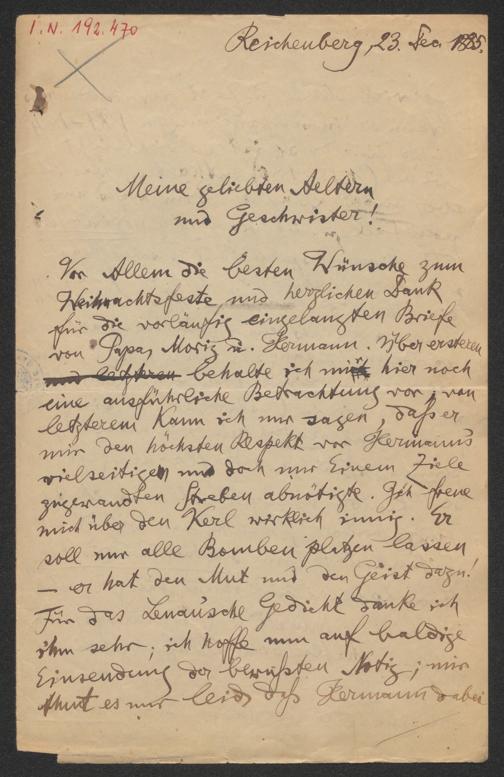 I.N. 192.470
Reichenberg, 23. Dec. 1885.
Meine geliebten Aeltern
und Geschwister!
Vor Allem die besten Wünsche zum
Weihnachtsfeste und herzlichen Dank
für die vorläufig eingelangten Briefe
von Papa, Moriz u. Hermann. Über ersteren
und letzteren behalte ich mir hier noch
eine ausführliche Betrachtung vor, von
letzterem kann ich nur sagen, daß er
mir den höchsten Respekt vor Hermann's
vielseitigen und doch nur Einem Ziele
zugewandten Streben abnötigte. Ich freue
mich über den Kerl wirklich innig. Er
soll nur alle Bomben platzen lassen
— er hat den Mut und den Geist dazu!
Für das Lenau'sche Gedicht danke ich
ihm sehr; ich hoffe nun auf baldige
Einsendung der bewußten Notiz; mir
thut es nur leid, daß Hermann dabei